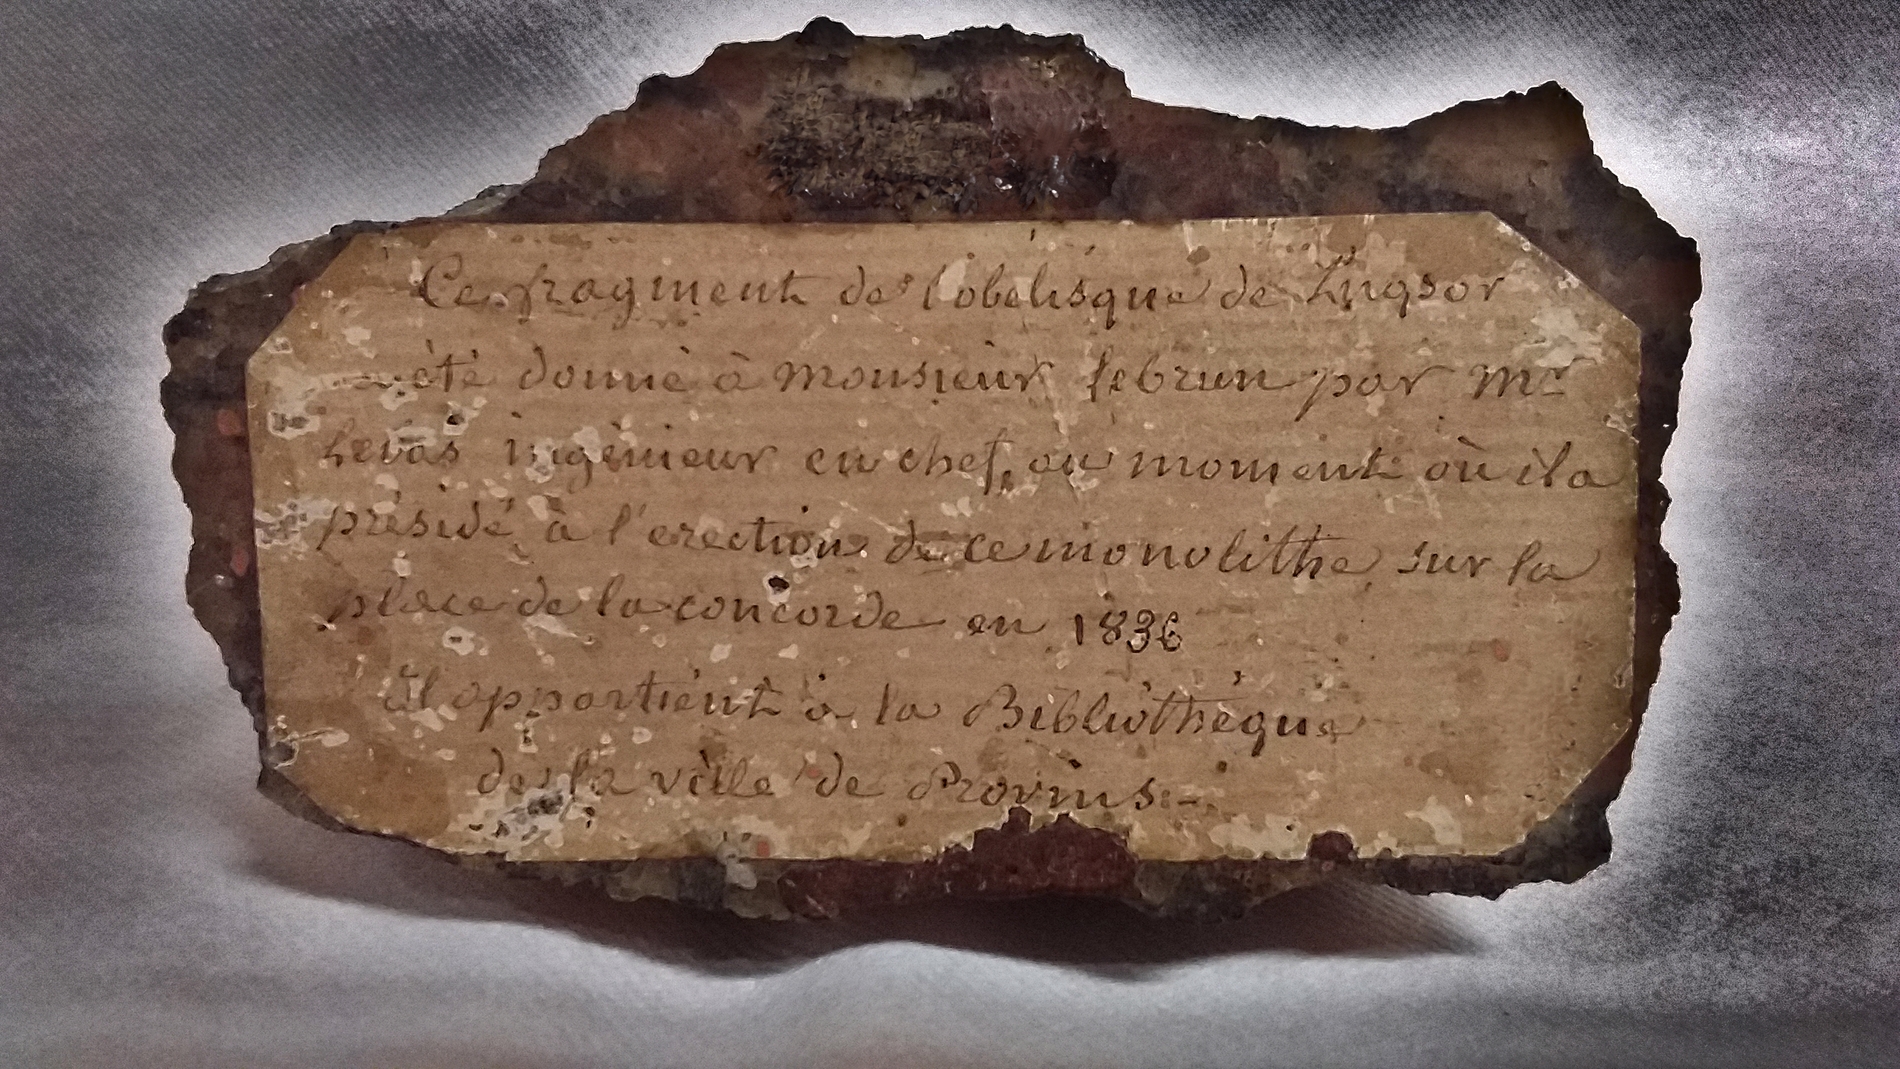 Ce fragment de l'obelisque de Luqsor
a été donné à monsieur lebrun par Mr
Lebas ingénieur en chef, au moment où il a
présidé à l'erection de ce monolithe, sur la
place de la concorde en 1836
Il appartient à la Bibliothèque
de la ville de Provins.-